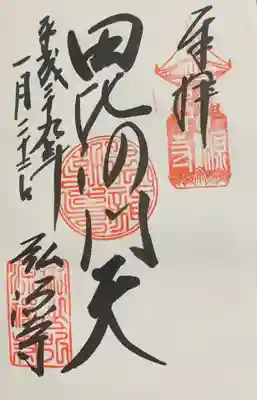 奉拝
毘沙門天
平成二十九年
一月二十三日
弘源寺